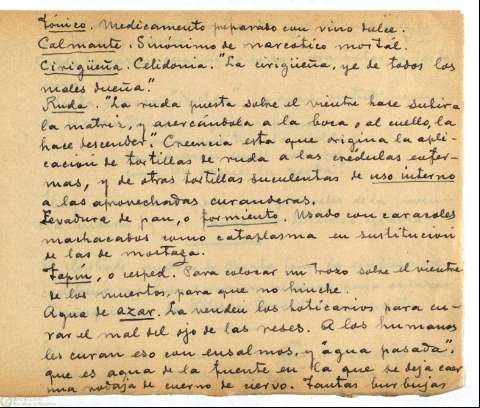 Tónico. Medicamento preparado con vino dulce.
Calmante. Sinónimo de narcótico mortal.
Cirigüeña. Celidonia. "La cirigüeña, ye de todos los
males dueña."
Ruda. "La ruda puesta sobre el vientre hase subir a
la matriz, y asercándola a la boca, al cuello, la
hace descender." Creencia esta que origina la apli-
cación de tortillas de ruda a las crédulas enfer-
mas, y de otras tortillas suculentas de uso interno
a las aprovechadas curanderas.
Levadura de pan, o formiento. Usado con caracoles
machacados como cataplasma en sustitución
de las de mostaza.
Tapín, o césped. Para colocar un trozo sobre el vientre
de los muertos, para que no hinche.
Agua de azar. La venden los boticarios para cu-
rar el mal del ojo de las reses. A los humanos
les curan eso con ensalmos, y "agua pasada",
que es agua de la fuente en la que se deja caer
una rodaja de cuerno de ciervo. Tantas burbujas